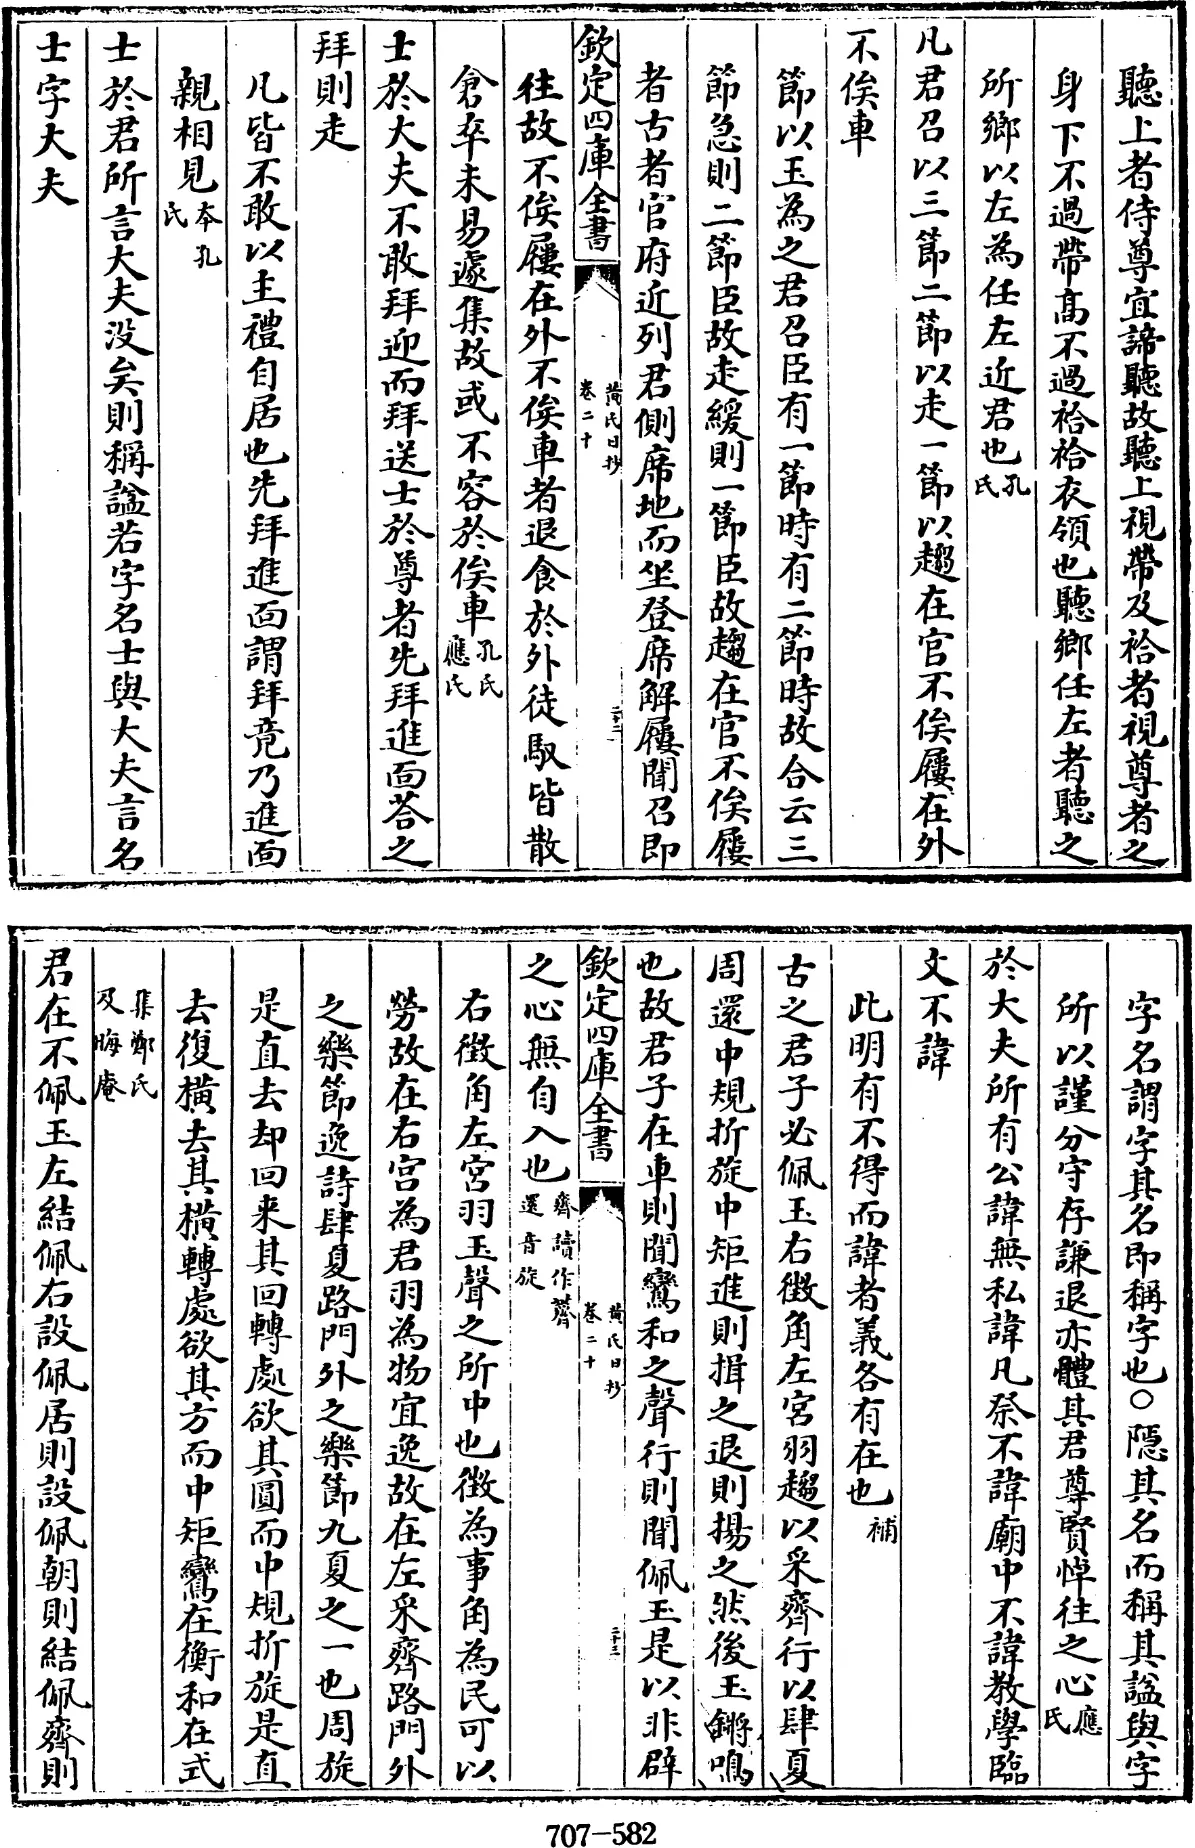 聽上者侍尊宜諦聽故聽上視帶及袷者視尊者之
身下不過帶高不過袷袷衣領也聽鄉任左者聽之
所鄉以左為任左近君也孔氏
凡君召以三節二節以走一節以趨在官不俟屨在外
不俟車
節以玉為之君召臣有一節時有二節時故合云三
節急則二節臣故走緩則一節臣故趨在官不俟屨
者古者官府近列君側席地而坐登席解屨聞召即
欽定四庫全書 黃氏日抄卷二十 二十二
往故不俟屨在外不俟車者退食於外徒馭皆散
倉卒未易遽集故或不容於俟車孔氏應氏
士於大夫不敢拜迎而拜送士於尊者先拜進面荅之
拜則走
凡皆不敢以主禮自居也先拜進面謂拜竟乃進面
親相見本孔氏
士於君所言大夫没矣則稱諡若字名士與大夫言名
士字大夫
字名謂字其名即稱字也○隱其名而稱其諡與字
所以謹分守存謙退亦體其君尊賢悼往之心應氏
於大夫所有公諱無私諱凡祭不諱廟中不諱教學臨
文不諱
此明有不得而諱者義各有在也補
古之君子必佩玉右徴角左宮羽趨以采齊行以肆夏
周還中規折旋中矩進則揖之退則揚之然後玉鏘鳴
也故君子在車則聞鸞和之聲行則聞佩玉是以非辟
欽定四庫全書 黃氏日抄卷二十 二十三
之心無自入也齊讀作薺還音旋
右徴角左宮羽玉聲之所中也徴為事角為民可以
勞故在右宮為君羽為物宜逸故在左采齊路門外
之樂節逸詩肆夏路門外之樂節九夏之一也周旋
是直去却回來其回轉處欲其圓而中規折旋是直
去復横去其横轉處欲其方而中矩鸞在衡和在式
集鄭氏及晦庵
君在不佩玉左結佩右設佩居則設佩朝則結佩齊則
707-582